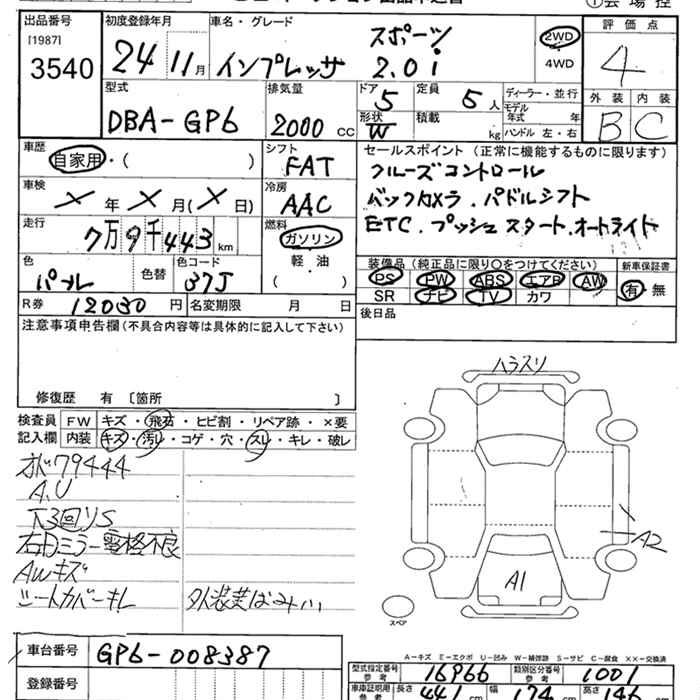 ①会場控
出品番号
[1987]
3540
初度登録年月
24 11月
車名・グレード
スポーツ
インプレッサ 2.0i
2WD
4WD
評価点
4
外装 内装
B C
型式
DBA-GP6
排気量
2000 CC
ドア 5
形状 W
定員 5人
積載 kg
ディーラー・並行
モデル年式 年
ハンドル 左・右
車歴
自家用・( )
シフト
FAT
セールスポイント (正常に機能するものに限ります)
クルーズコントロール
バックカメラ.パドルシフト
ETC.プッシュスタート.オートライト
車検
×年×月(×日)
冷房
AAC
走行
7万9千443km
燃料
ガソリン
軽・油
( )
色
パール
色替
色コード
37J
装備品 (純正品に限り○をつけてください)
PS PW ABS エアB AW
SR ナビ TV カワ
新車保証書
有・無
R券 12030円
名変期限 月 日
後日品
注意事項申告欄 (不具合内容等は具体的に記入して下さい)
修復歴 有 [箇所 ]
検査員記入欄
FW キズ・飛石・ヒビ割・リペア跡・×要
内装 キズ・汚レ・コゲ・穴・スレ・キレ・破レ
オド79444
A.U
下3回りS
右Dミラー電格不良
AWキズ
シートカバーキレ
ハラスリ
A2
A1
スペア
A-キズ E-エクボ U-凹み W-補修跡 S-サビ C-腐食 XX-交換済
車台番号 GP6-008387
登録番号
型式指定番号 参考 16966
類別区分番号 参考 1001
車庫証明用 参考 長さ 441 cm 幅 174 cm 高さ 146 cm